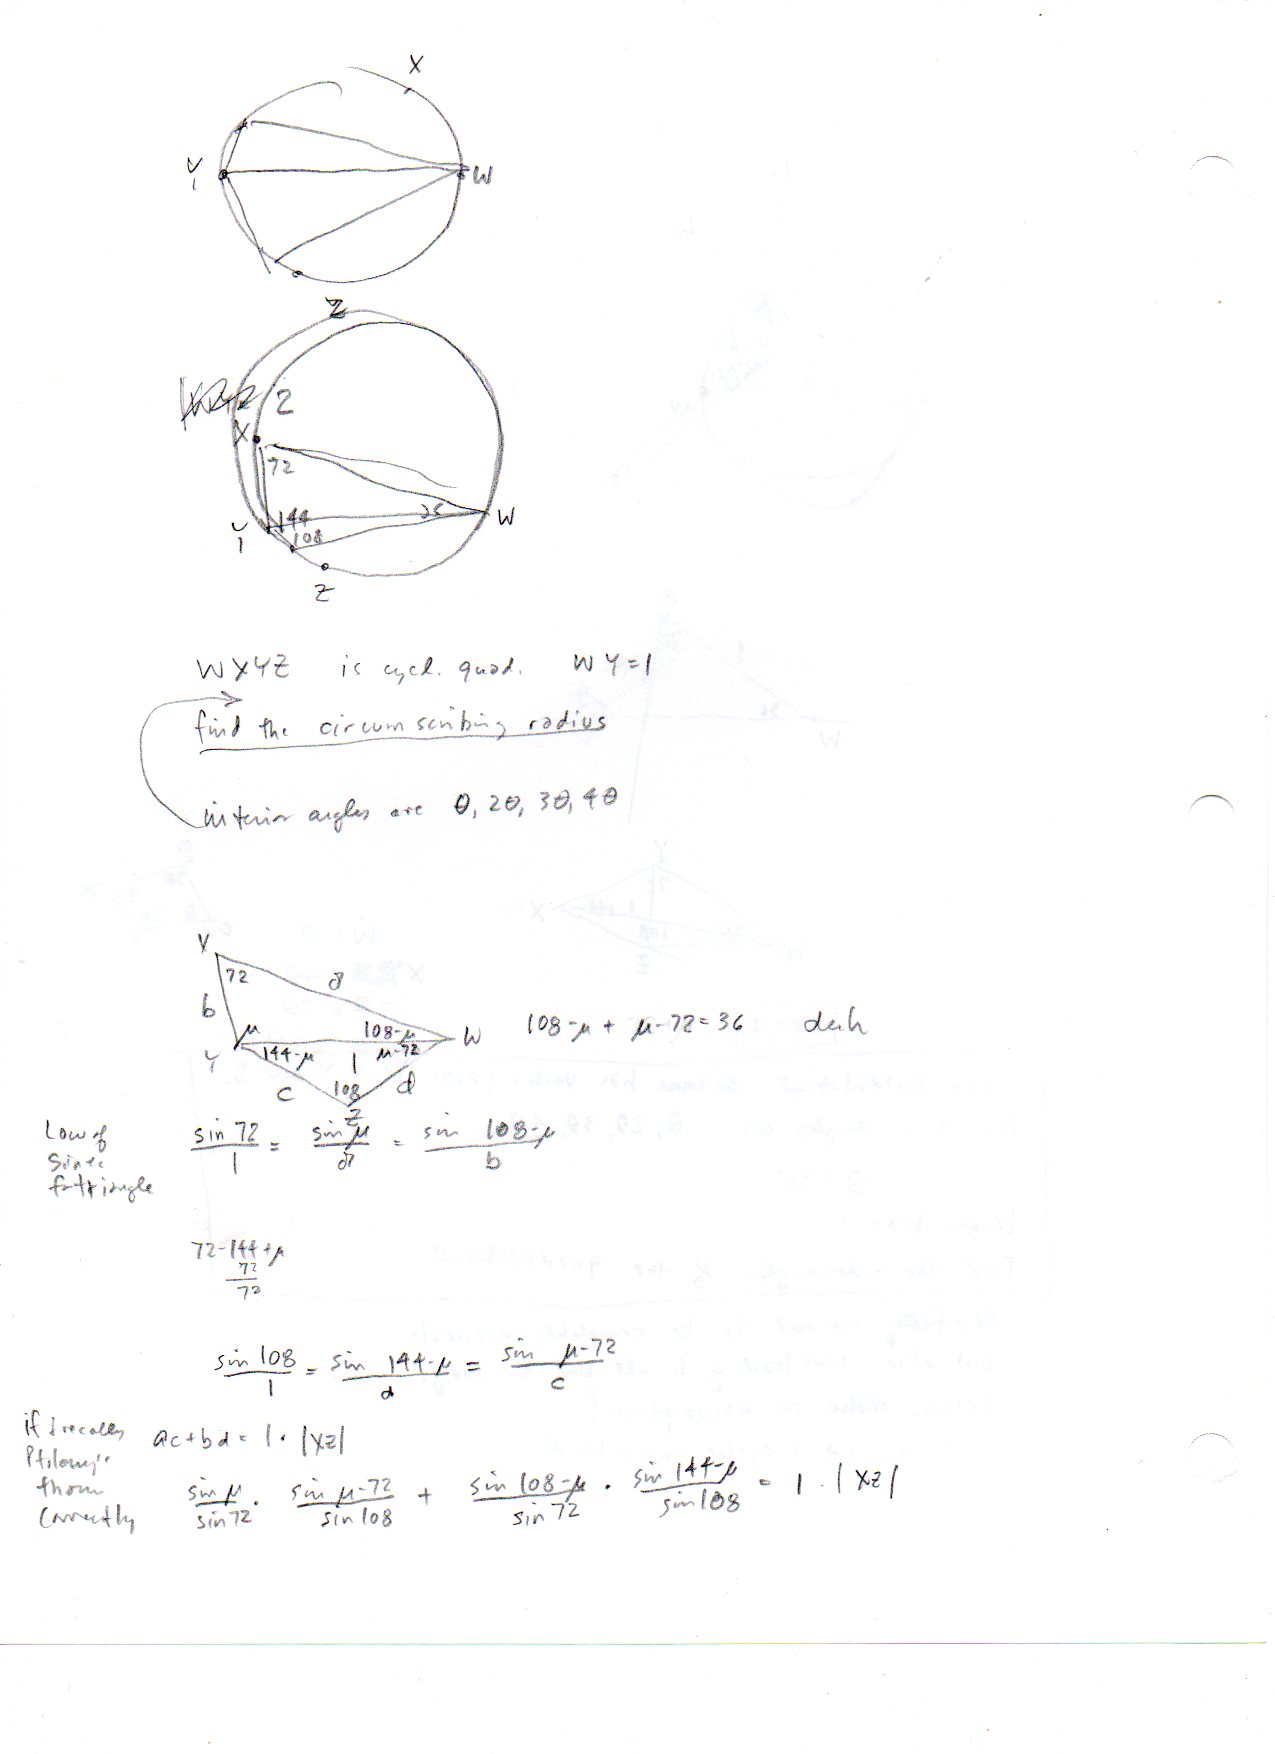 X
Y
W
Z
2
X
72
144
36
W
Y
108
Z
WXYZ is cycl. quad. WY=1
find the circumscribing radius
interior angles are θ, 2θ, 3θ, 4θ
X
72
a
b
μ
108-μ
W
108-μ + μ-72=36 duh
Y
144-μ
1
μ-72
c
108
d
Z
Law of
Sines
for triangle
sin 72 / 1 = sin μ / a = sin 108-μ / b
72-144+μ
72
72
sin 108 / 1 = sin 144-μ / d = sin μ-72 / c
if I recall
Ptolemy's
thom
correctly
ac+bd = 1·|XZ|
sin μ / sin 72 · sin μ-72 / sin 108 + sin 108-μ / sin 72 · sin 144-μ / sin 108 = 1·|XZ|